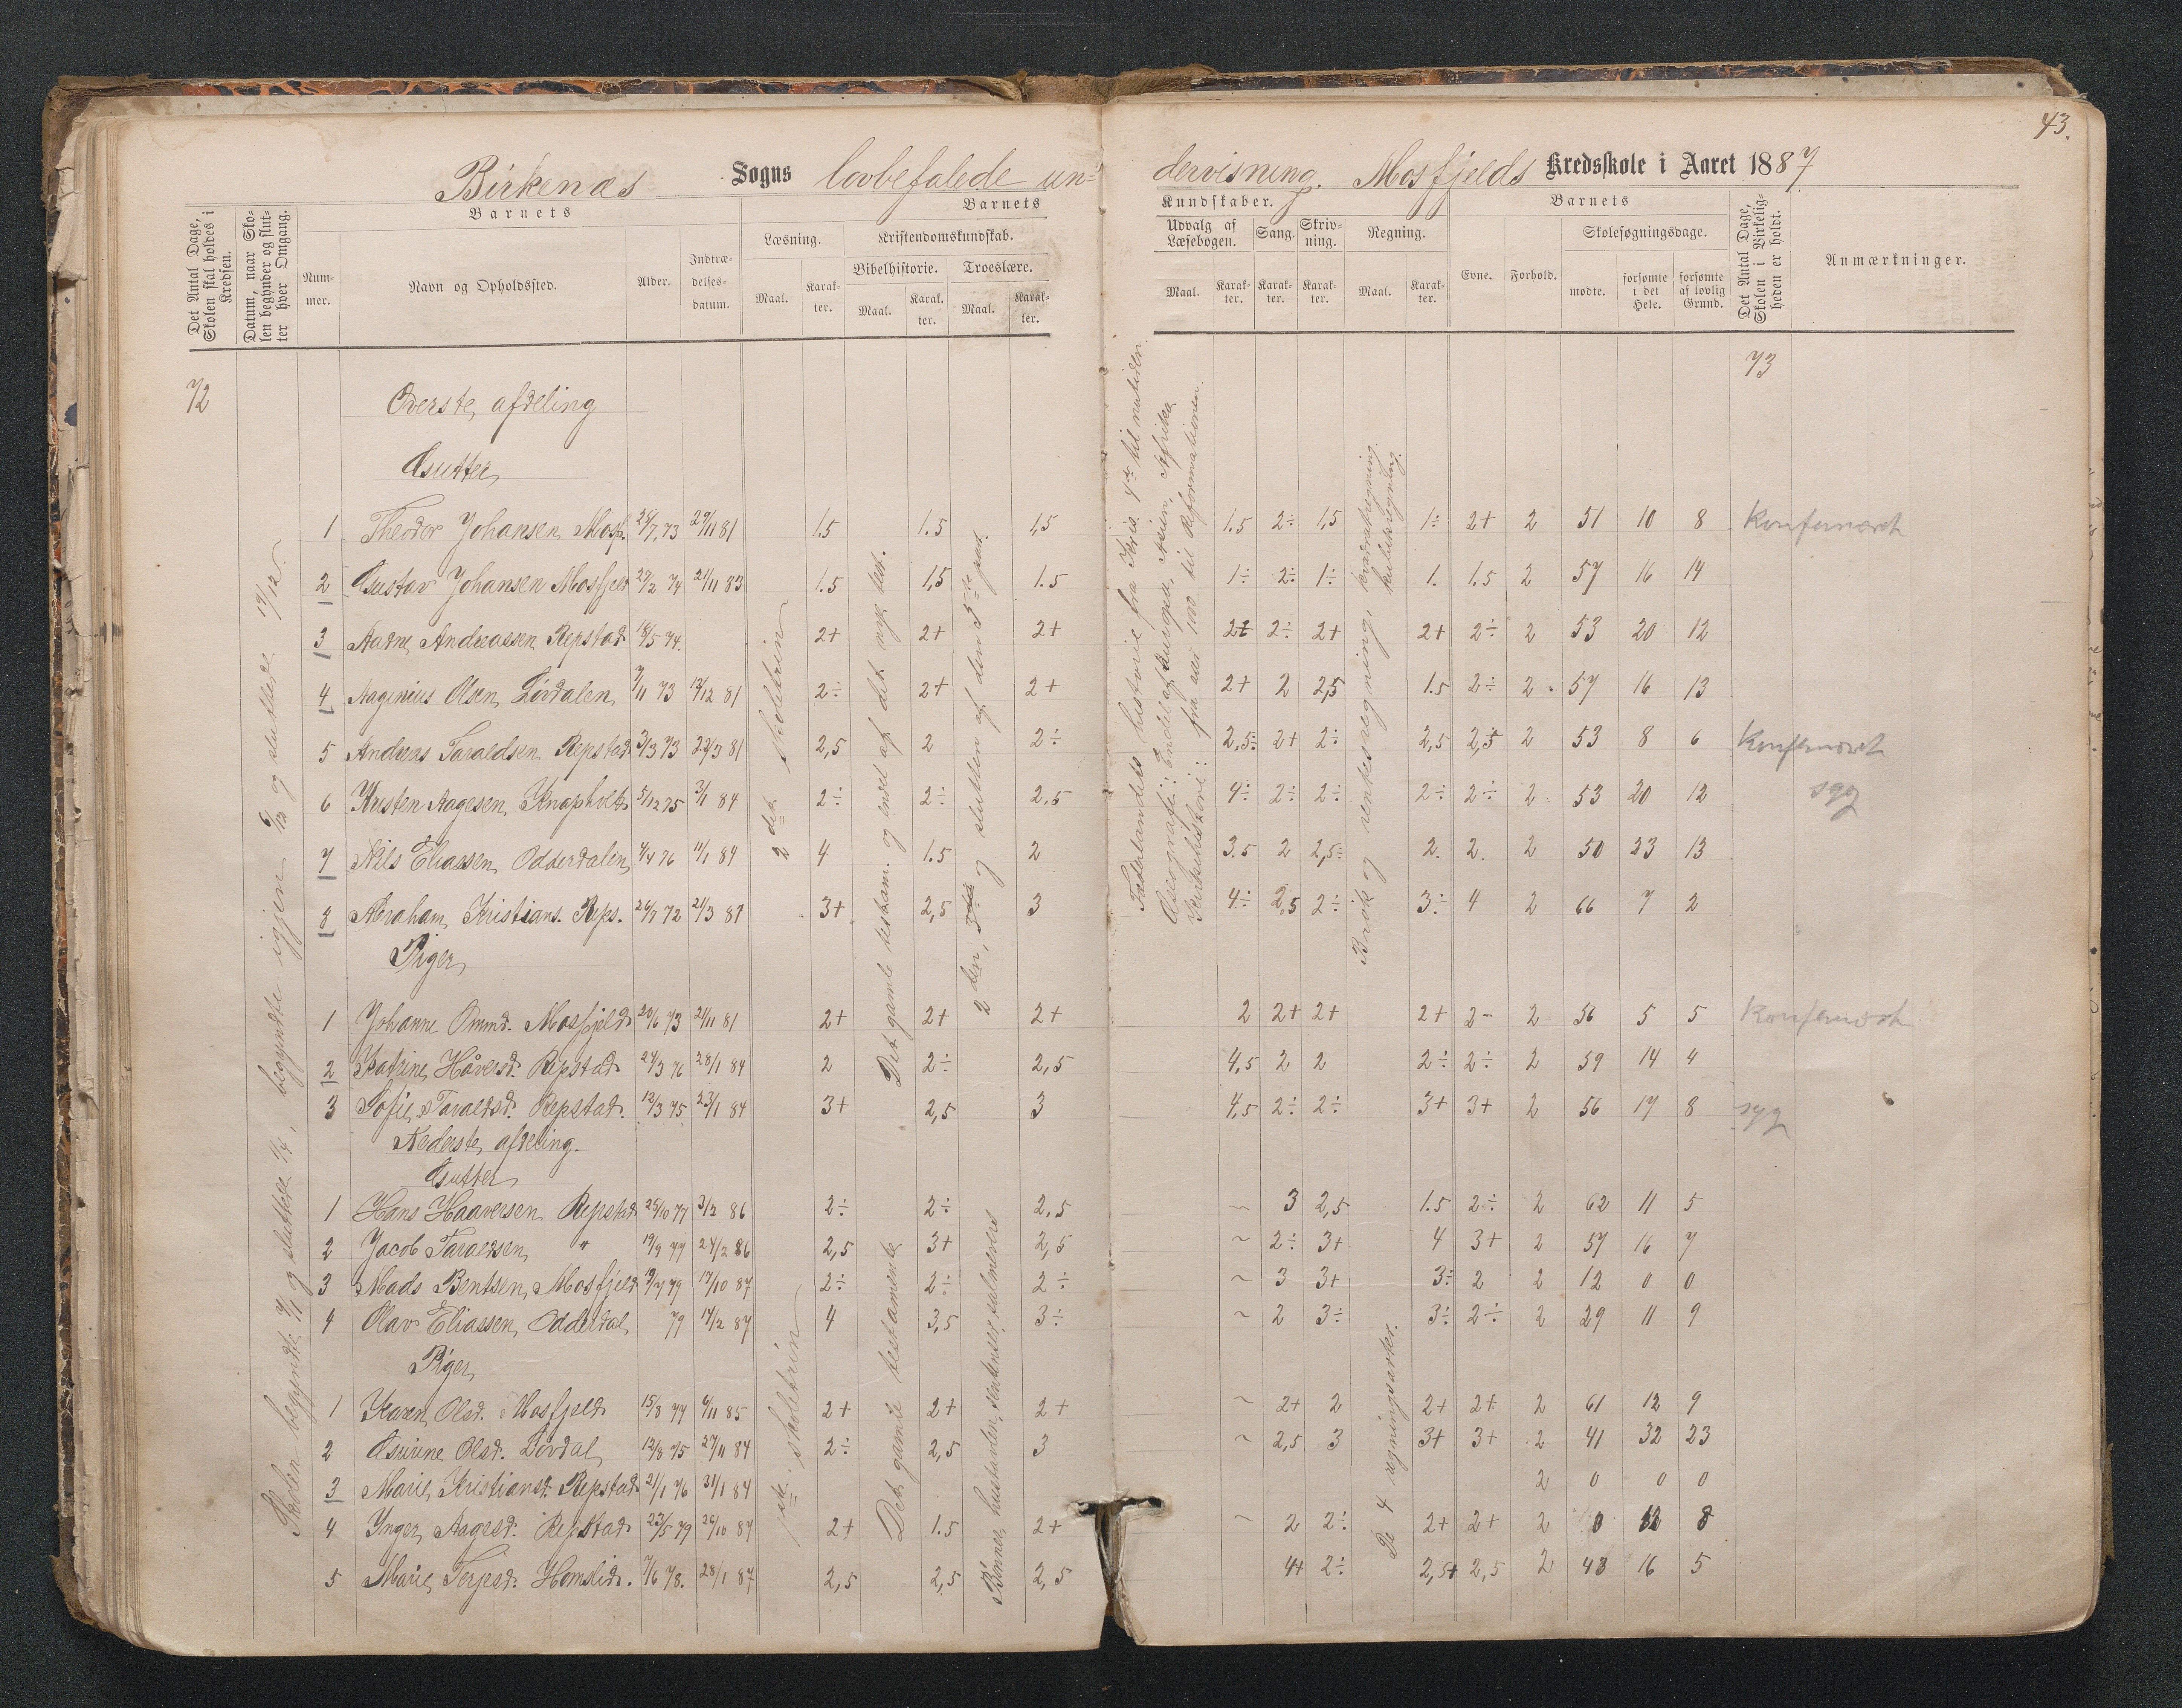 43.
Birkenæs Sogns lovbefalede un- dervisning. Mosfjelds Kredsskole i Aaret 1887
Det Antal Dage, Skolen skal holdes i Kredsen.
Datum, naar Skolen begynder og slutter hver Omgang.
Barnets
Nummer.
Navn og Opholdssted.
Alder.
Indtrædelsesdatum.
Barnets
Læsning.
Maal.
Karakter.
Kristendomskundskab.
Bibelhistorie.
Maal.
Karakter.
Troeslære.
Maal.
Karakter.
Kundskaber.
Udvalg af Læsebogen.
Maal.
Karakter.
Sang.
Karakter.
Skrivning.
Karakter.
Regning.
Maal.
Karakter.
Barnets
Evne.
Forhold.
Skolesøgningsdage.
mødte.
forsømte i det Hele.
forsømte af lovlig Grund.
Det Antal Dage, Skolen i Virkeligheden er holdt.
Anmærkninger.
72
73
Skolen begyndte 7/1 og sluttede 1/4, begyndte igjen 6/10 og sluttede 17/12.
Øverste afdeling
Gutter
1 Theodor Johansen Mosf. 28/7 73 29/11 81 1.5 1.5 1,5 1.5 2÷ 1,5 1÷ 2+ 2 51 10 8 Konfermeret
2 Gustav Johansen Mosfjeld 27/2 74 21/11 83 1.5 1,5 1.5 1÷ 2÷ 1÷ 1. 1.5 2 57 16 14
3 Aadne Andreassen Repstad 18/5 74. 2+ 2+ 2+ 2+ 2÷ 2+ 2+ 2÷ 2 53 20 12
4 Aaginius Olsen Lövdalen 7/11 73 13/12 81 2÷ 2+ 2+ 2+ 2 2,5 1.5 2÷ 2 57 16 13
5 Andreas Taraldsen Repstad 3/3 73 22/3 81 2,5 2 2÷ 2,5÷ 2+ 2÷ 2,5 2,5 2 53 8 6 Konfermeret
6 Kristen Aagesen Knapholt 5/12 75 3/1 84 2÷ 2÷ 2.5 4÷ 2÷ 2÷ 2÷ 2÷ 2 53 20 12 syg
7 Nils Eliassen Odderdalen 4/4 76 11/1 84 4 1.5 2 3.5 2 2,5÷ 2. 2. 2 50 23 13
8 Abraham Kristians. Reps. 26/7 72 21/3 81 3+ 2,5 3 4÷ 2,5 2÷ 3÷ 4 2 66 7 2
Piger
1 Johanne Ommd. Mosfjeld 20/6 73 21/11 81 2+ 2+ 2+ 2 2+ 2+ 2+ 2- 2 56 5 5 Konfermeret
2 Katrine Håversd. Repstad 24/3 76 28/1 84 2 2÷ 2,5 4,5 2 2 2÷ 2÷ 2 59 14 4
3 Sofie Taraldsd. Repstad. 12/3 75 23/1 84 3+ 2,5 3 4,5 2÷ 2÷ 3+ 3+ 2 56 17 8 syg
2det skoletrin
Det gamle testam. og endel af det nye test.
2den, 3die og slutten af den 5te part.
Fædrelandets historie fra Kris. 4de til nutiden.
Geografi: Endel af Europa, Asien, Afrika
Kirkehistorie: fra aar 1100 til Reformationen.
Brøk og rentesregning, kvadratregning kubikregning.
Nederste afdeling.
Gutter
1 Hans Haaversen Repstad 25/10 77 3/2 86 2÷ 2÷ 2,5 ~ 3 2,5 1.5 2÷ 2 62 11 5
2 Jacob Taraldsen " 19/9 77 24/2 86 2,5 3+ 2,5 ~ 2÷ 3+ 4 3+ 2 57 16 7
3 Mads Bentsen Mosfjeld 19/7 79 17/10 87 2÷ 2÷ 2÷ ~ 3 3+ 3÷ 2 2 12 0 0
4 Olav Eliassen Odderdal 79 14/2 87 4 3,5 3÷ ~ 2 3÷ 3÷ 2÷ 2 29 11 9
Piger
1 Karen Olsd. Mosfjeld 15/8 77 6/11 85 2+ 2+ 2+ ~ 2+ 2 2+ 2+ 2 61 12 9
2 Gurine Olsd. Lövdal 12/8 75 27/11 84 2÷ 2,5 3 ~ 2,5 3 3+ 3+ 2 41 32 23
3 Marie Kristiansd. Repstad 21/1 76 31/1 84 2 0 0 0
4 Inger Aagesd. Repstad 23/5 79 26/10 87 2+ 1.5 2+ ~ 2 2÷ 2+ 2+ 2 0 12 8
5 Marie Terjesd. Homslid. 7/6 78. 28/1 87 2,5 2,5 2,5 4+ 2÷ 2,5+ 2,5 2 43 16 5
1ste skoletrin
Det gamle testamente
Bönner, hustavlen, sentenser, salmevers
De 4 regningsarter.